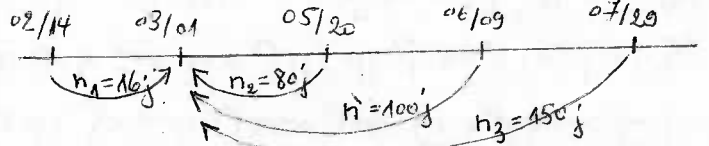 02/14 03/01 05/20 06/09 07/29
n₁=16j n₂=80j n=100j n₃=150j